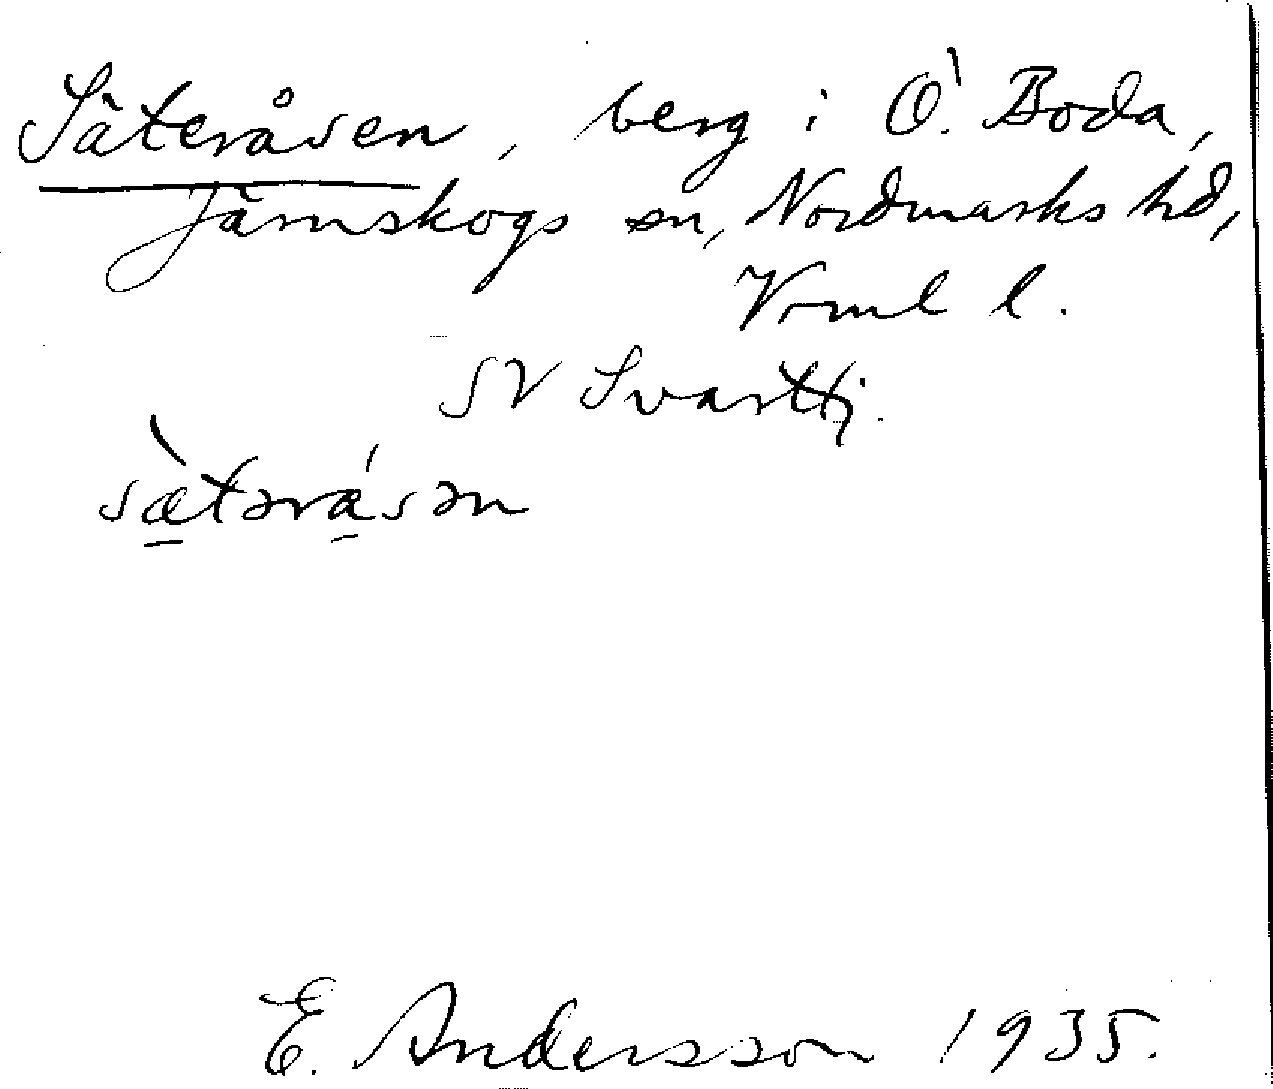 Säteråsen, berg i Ö. Boda,
Järnskogs sn, Nordmarks hd,
Vrml l.
SV Svarttj.
sæ̀tərásən
E. Andersson 1935.